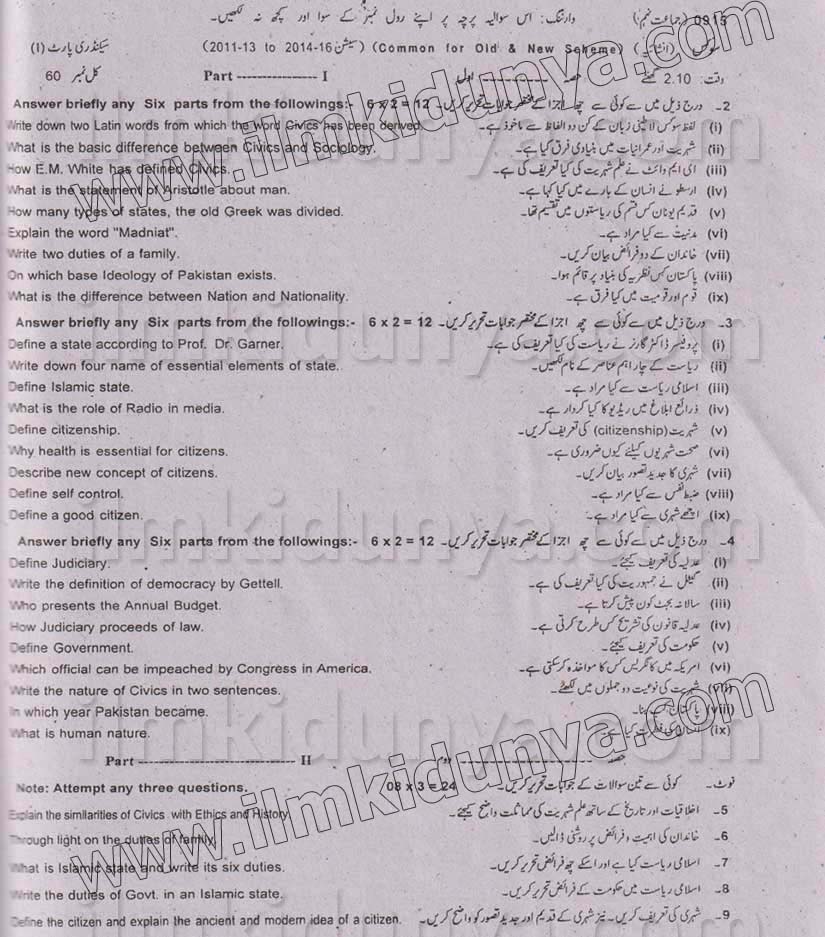 0915 (جماعت نہم) وارننگ: اس سوالیہ پرچہ پر اپنے رول نمبر کے سوا اور کچھ نہ لکھیں۔
سوکس (انشائیہ) (Common for Old & New Scheme) (2011-13 to 2014-16 سیشن) سیکنڈری پارٹ (I)
وقت: 2.10 گھنٹے حصہ ---------- اول Part ---------------- I کل نمبر 60
Answer briefly any Six parts from the followings:- 6 x 2 = 12 2۔ درج ذیل میں سے کوئی سے چھ اجزا کے مختصر جوابات تحریر کریں۔
Write down two Latin words from which the word Civics has been derived. (i) لفظ سوکس لاطینی زبان کے کن دو الفاظ سے ماخوذ ہے۔
What is the basic difference between Civics and Sociology. (ii) شہریت اور عمرانیات میں بنیادی فرق کیا ہے۔
How E.M. White has defined Civics. (iii) ای ایم وائٹ نے علم شہریت کی کیا تعریف کی ہے۔
What is the statement of Aristotle about man. (iv) ارسطو نے انسان کے بارے میں کیا کہا ہے۔
How many types of states, the old Greek was divided. (v) قدیم یونان کس قسم کی ریاستوں میں تقسیم تھا۔
Explain the word "Madniat". (vi) مدنیت سے کیا مراد ہے۔
Write two duties of a family. (vii) خاندان کے دو فرائض بیان کریں۔
On which base Ideology of Pakistan exists. (viii) پاکستان کس نظریہ کی بنیاد پر قائم ہوا۔
What is the difference between Nation and Nationality. (ix) قوم اور قومیت میں کیا فرق ہے۔
Answer briefly any Six parts from the followings:- 6 x 2 = 12 3۔ درج ذیل میں سے کوئی سے چھ اجزا کے مختصر جوابات تحریر کریں۔
Define a state according to Prof. Dr. Garner. (i) پروفیسر ڈاکٹر گارنر نے ریاست کی کیا تعریف کی ہے۔
Write down four name of essential elements of state. (ii) ریاست کے چار اہم عناصر کے نام لکھیں۔
Define Islamic state. (iii) اسلامی ریاست سے کیا مراد ہے۔
What is the role of Radio in media. (iv) ذرائع ابلاغ میں ریڈیو کا کیا کردار ہے۔
Define citizenship. (v) شہریت (citizenship) کی تعریف کریں۔
Why health is essential for citizens. (vi) صحت شہریوں کیلئے کیوں ضروری ہے۔
Describe new concept of citizens. (vii) شہری کا جدید تصور بیان کریں۔
Define self control. (viii) ضبط نفس سے کیا مراد ہے۔
Define a good citizen. (ix) اچھے شہری سے کیا مراد ہے۔
Answer briefly any Six parts from the followings:- 6 x 2 = 12 4۔ درج ذیل میں سے کوئی سے چھ اجزا کے مختصر جوابات تحریر کریں۔
Define Judiciary. (i) عدلیہ کی تعریف کیجئے۔
Write the definition of democracy by Gettell. (ii) گیٹل نے جمہوریت کی کیا تعریف کی ہے۔
Who presents the Annual Budget. (iii) سالانہ بجٹ کون پیش کرتا ہے۔
How Judiciary proceeds of law. (iv) عدلیہ قانون کی تشریح کس طرح کرتی ہے۔
Define Government. (v) حکومت کی تعریف کیجئے۔
Which official can be impeached by Congress in America. (vi) امریکہ میں کانگریس کس کا مواخذہ کر سکتی ہے۔
Write the nature of Civics in two sentences. (vii) شہریت کی نوعیت دو جملوں میں لکھئے۔
In which year Pakistan became. (viii) پاکستان کب بنا۔
What is human nature. (ix) انسان کی فطرت کیا ہے۔
Part ------------------------------ II حصہ -------------------- دوم
Note: Attempt any three questions. 08 x 3 = 24 نوٹ۔ کوئی سے تین سوالات کے جوابات تحریر کریں۔
Explain the similarities of Civics with Ethics and History. 5۔ اخلاقیات اور تاریخ کے ساتھ علم شہریت کی مماثلت واضح کیجئے۔
Through light on the duties of family. 6۔ خاندان کی اہمیت و فرائض پر روشنی ڈالیں۔
What is Islamic state and write its six duties. 7۔ اسلامی ریاست کیا ہے اور اسکے چھ فرائض تحریر کریں۔
Write the duties of Govt. in an Islamic state. 8۔ اسلامی ریاست میں حکومت کے فرائض تحریر کریں۔
Define the citizen and explain the ancient and modern idea of a citizen. 9۔ شہری کی تعریف کریں۔ نیز شہری کے قدیم اور جدید تصور کو واضح کریں۔
www.ilmkidunya.com
www.ilmkidunya.com
ilmkidunya.com
ilmkidunya.com
ilmkidunya.com
ilmkidunya.com